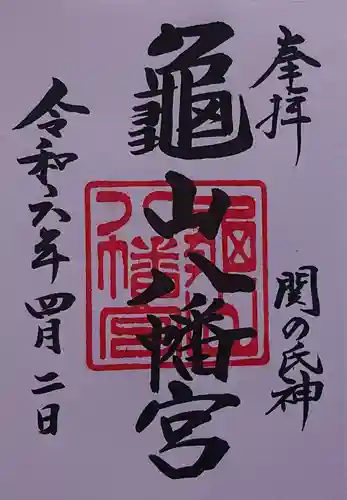 奉拝
関の氏神
亀山八幡宮
令和六年四月二日
亀山八幡宮